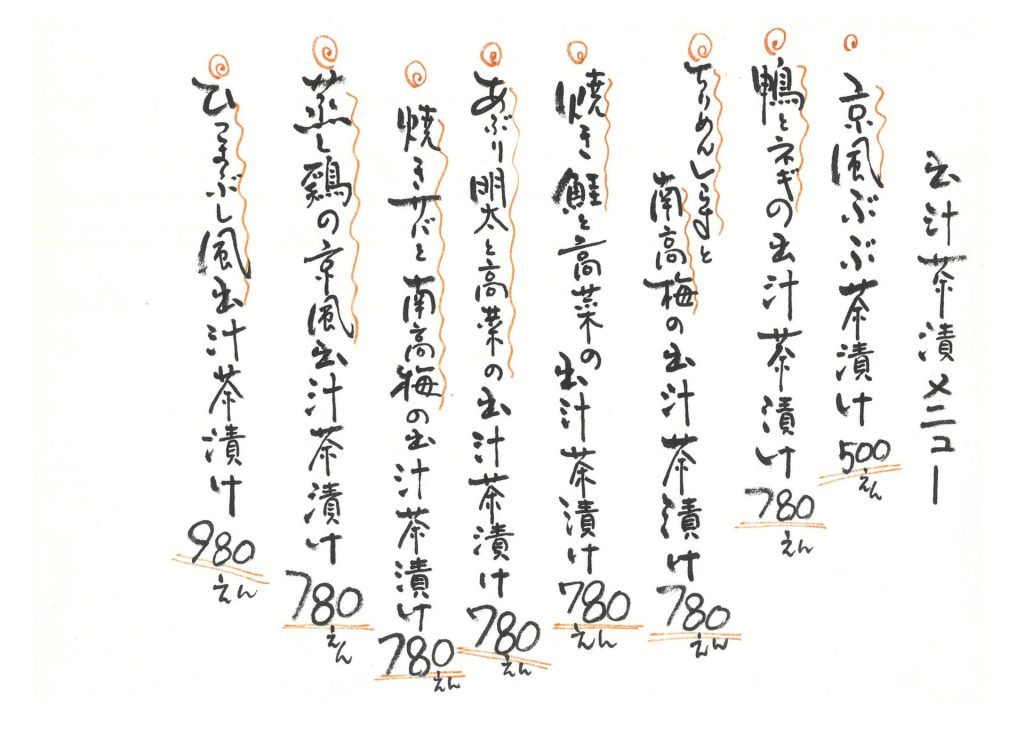 出汁茶漬メニュー
京風ぶぶ茶漬け 500えん
鴨とネギの出汁茶漬け 780えん
ちりめんしらすと
南高梅の出汁茶漬け 780えん
焼き鮭と高菜の出汁茶漬け 780えん
あぶり明太と高菜の出汁茶漬け 780えん
焼きサバと南高梅の出汁茶漬け 780えん
蒸し鶏の京風出汁茶漬け 780えん
ひつまぶし風出汁茶漬け 980えん